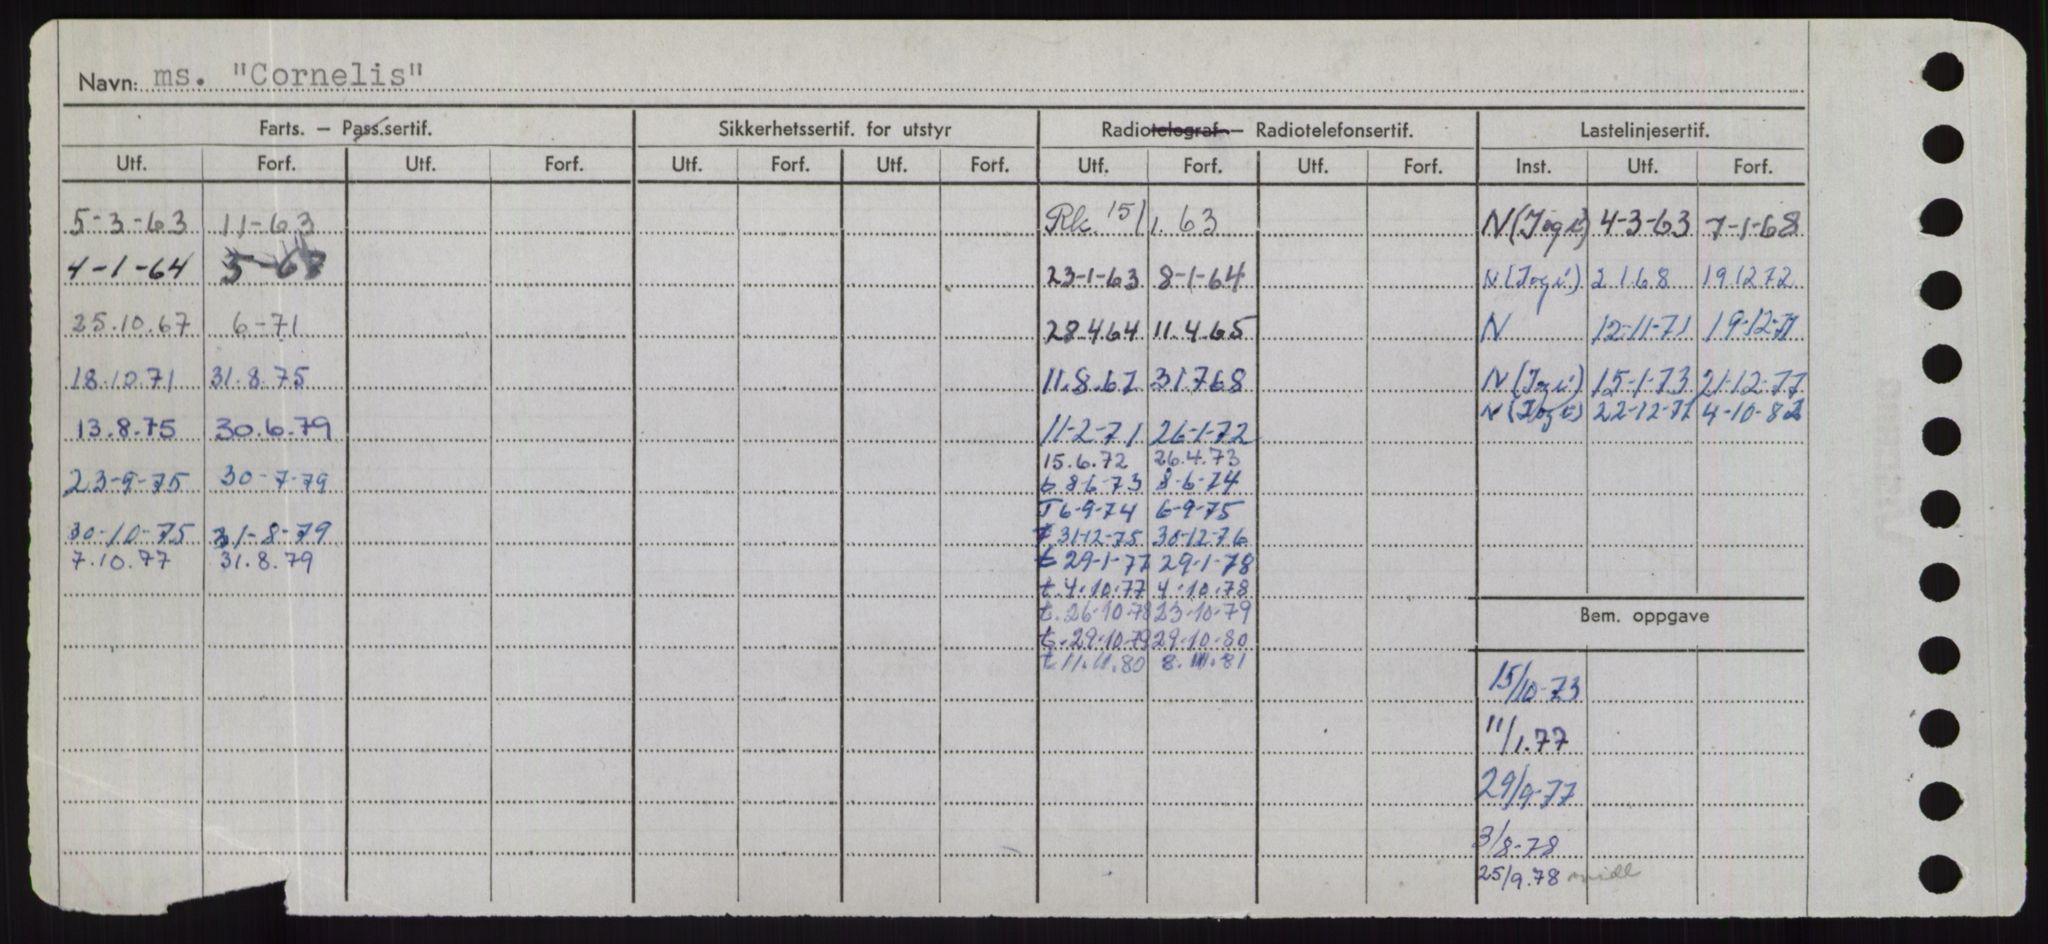 Navn: ms. "Cornelis"
Farts. — Pass.sertif. Sikkerhetssertif. for utstyr Radiotelegraf — Radiotelefonsertif. Lastelinjesertif.
Utf. Forf. Utf. Forf. Utf. Forf. Utf. Forf. Utf. Forf. Utf. Forf. Inst. Utf. Forf.
5-3-63 11-63 Rk. 15/1. 63 N (Jøgi) 4-3-63 7-1-68
4-1-64 5-68 23-1-63 8-1-64 N (Jøgi) 2 1 68 19 12 72
25.10.67 6-71 28.4.64 11.4.65 N 12-11-71 19-12-71
18.10.71 31.8.75 11.8.67 31 7 68 N (Jøgi) 15-1-73 21-12-77
N (Jøgi) 22-12-77 4-10-82
13.8.75 30.6.79 11-2-71 26-1-72
15.6.72 26.4.73
23-9-75 30-7-79 t 8-6-73 8-6-74
T 6-9-74 6-9-75
30-10-75 31-8-79 t 31-12-75 30-12-76
7.10.77 31.8.79 t 29-1-77 29-1-78
t.4.10.77 4.10.78
t.26.10.78 23.10.79
Bem. oppgave
t.29.10.79 29.10.80
t 11.11.80 8.111.81
15/10-73
11/1.77
29/9-77
3/8-78
25/9.78